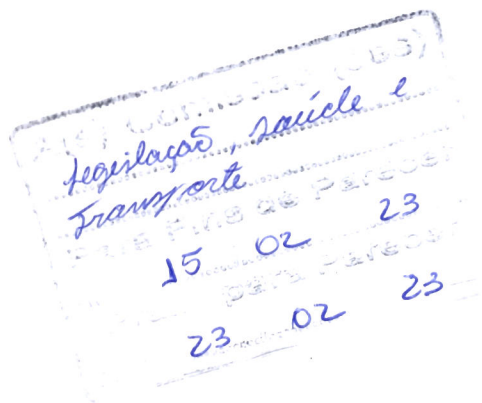 A(s) Comissão (ões)
Legislação, saúde e
Transporte
Para Fins de Parecer
15 02 23
para Parecer
23 02 23